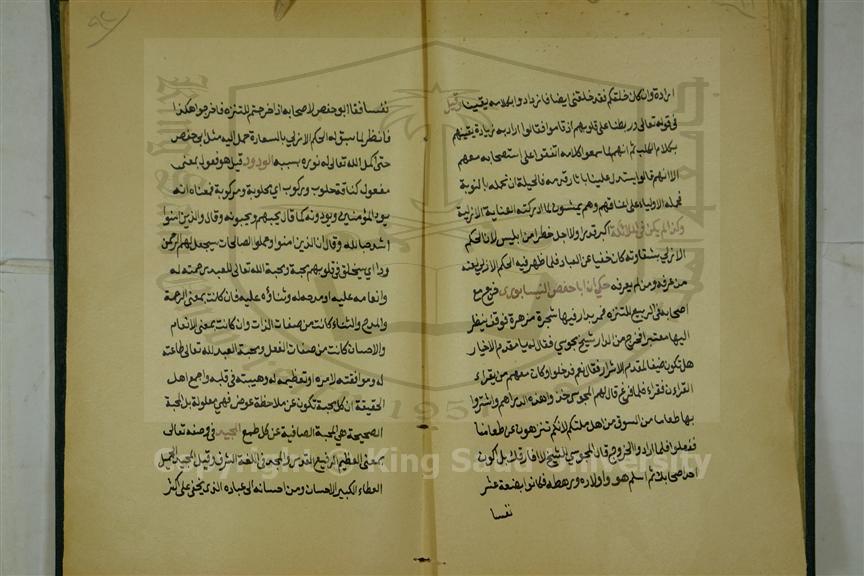 ارادة وان كان خلقكم فقد خلقني ايضا فانزياد وابكلامه يقينا وقيل
في قوله تعالى وربطنا على قلوبهم اذ قاموا فقالوا اراد به زيادة يقينهم
بكلام الكلب ثم انهم لما سمعوا كلامه اتفقوا على استصحابه معهم
الا انهم قالوا يستدل علينا باثار قدمه فالحيلة ان نحمله بالنوبة
فحمله الاولياء على اعناقهم وهم يمشون لما ادركته العناية الازلية
ولان لم يكن في الملائكة اكبر قدرا ولا اجل خطرا من ابليس الا ان الحكم
الازلي بشقاوته كان خفيا عن العباد فلما ظهر فيه الحكم الازلي لعنه
من عرفه ومن لم يعرفه حكي ان ابا حفص النيسابوري خرج مع
اصحابه في الربيع للتنزه فمر بدار فيها شجرة مزهرة فوقف ينظر
اليها معتبرا فخرج من الدار شيخ مجوسي فقال له يا مقدم الاخيار
هل تكون ضيفا لمقدم الاشرار فقال نعم فدخلوا وكان معهم من يقراء
القراءن فقراء فلما فرغ قال لهم المجوسي خذوا هذه الدراهم واشتروا
بها طعاما من السوق من اهل ملتكم لانكم تتنزهون عن طعامنا
ففعلوا فلما اراد والخروج قال المجوسي للشيخ لا افارقك بل اكون
احد اصحابك ثم اسلم هو واولاده ورهطه فكانوا بضعة عشر
نفسا
٩٤
نفسا فقال ابو حفص لاصحابه اذا خرجتم للتنزه فاخرجوا هكذا
فانظر لما سبق له الحكم الازلي بالسعادة حمل اليه مثل ابو حفص
حتى اكمل الله تعالى له نوره بسببه الودود قيل هو فعول بمعنى
مفعول كناقة حلوب وركوب اي محلوبة ومركوبة فمعناه انه
يود المؤمنين ويودونه كما قال يحبهم ويحبونه وقال والذين امنوا
اشد حبا لله وقال ان الذين امنوا وعملوا الصالحات سيجعل لهم الرحمن
ودا اي سيخلق في قلوبهم محبة ومحبة الله تعالى للعبد رحمته له
وانعامه عليه او مدحه له وثناؤه عليه فان كانت بمعنى الرحمة
والمدح والثناء كانت من صفات الذات وان كانت بمعنى الانعام
والاحسان كانت من صفات الفعل ومحبة العبد لله تعالى طاعته
له وموافقته لامره او تعظيمه له وهيبته في قلبه واجمع اهل
الحقيقة ان كل محبة تكون عن ملاحظة عوض فهي معلولة بل المحبة
الصحيحة هي المحبة الصافية عن كل طمع المجيد في وصفه تعالى
بمعنى العظيم الرفيع القدر والمجد في اللغة الشرف وقيل المجيد الجميل
العطاء الكبير الاحسان ومن احسانه الى عباده الذي يخفى على اكثر
Copyright © King Saud University
1957